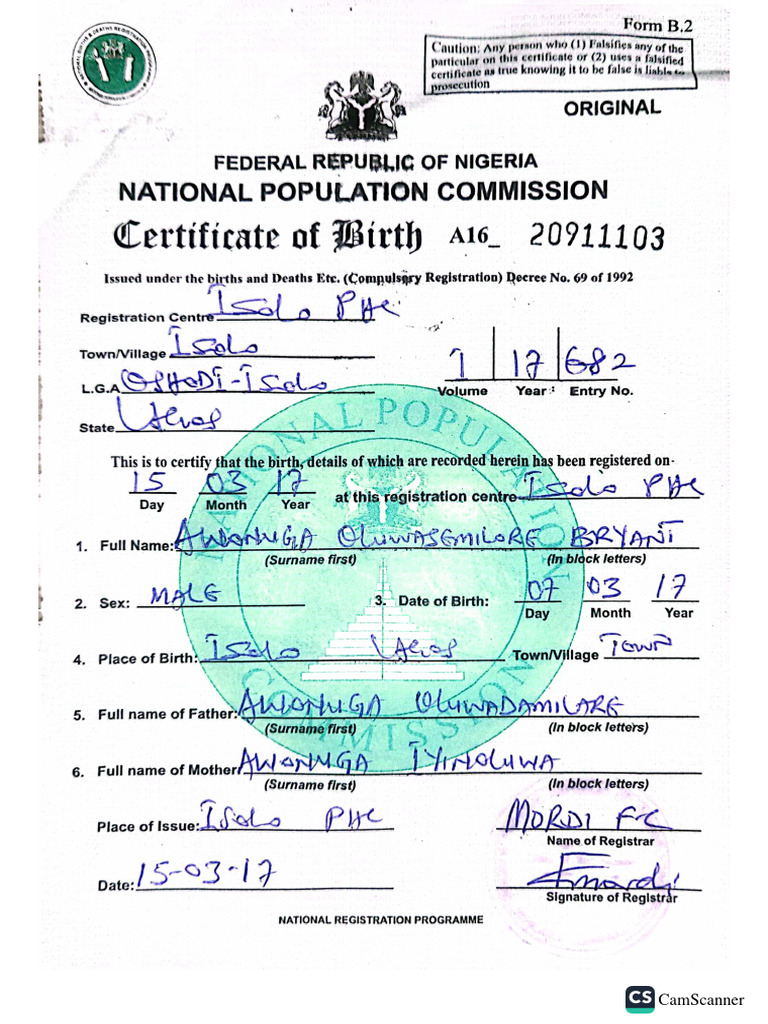 Form B.2
Caution: Any person who (1) Falsifies any of the
particular on this certificate or (2) uses a falsified
certificate as true knowing it to be false is liable to
prosecution
ORIGINAL
FEDERAL REPUBLIC OF NIGERIA
NATIONAL POPULATION COMMISSION
Certificate of Birth A16_ 20911103
Issued under the births and Deaths Etc. (Compulsory Registration) Decree No. 69 of 1992
Registration Centre Isolo PHC
Town/Village Isolo
L.G.A OSHODI-Isolo
1 17 682
Volume Year: Entry No.
State Lagos
This is to certify that the birth, details of which are recorded herein has been registered on-
15 03 17 at this registration centre Isolo PHC
Day Month Year
1. Full Name: AWONUGA OLUWASEMILORE BRYANT
(Surname first) (In block letters)
2. Sex: MALE 3. Date of Birth: 07 03 17
Day Month Year
4. Place of Birth: Isolo Lagos Town/Village TOWN
5. Full name of Father: AWONUGA OLUWADAMILARE
(Surname first) (In block letters)
6. Full name of Mother AWONUGA IYINOLUWA
(Surname first) (In block letters)
Place of Issue: Isolo PHC MORDI F.C
Name of Registrar
Date: 15-03-17
Signature of Registrar
NATIONAL REGISTRATION PROGRAMME
NATIONAL POPULATION
COMMISSION
CS CamScanner